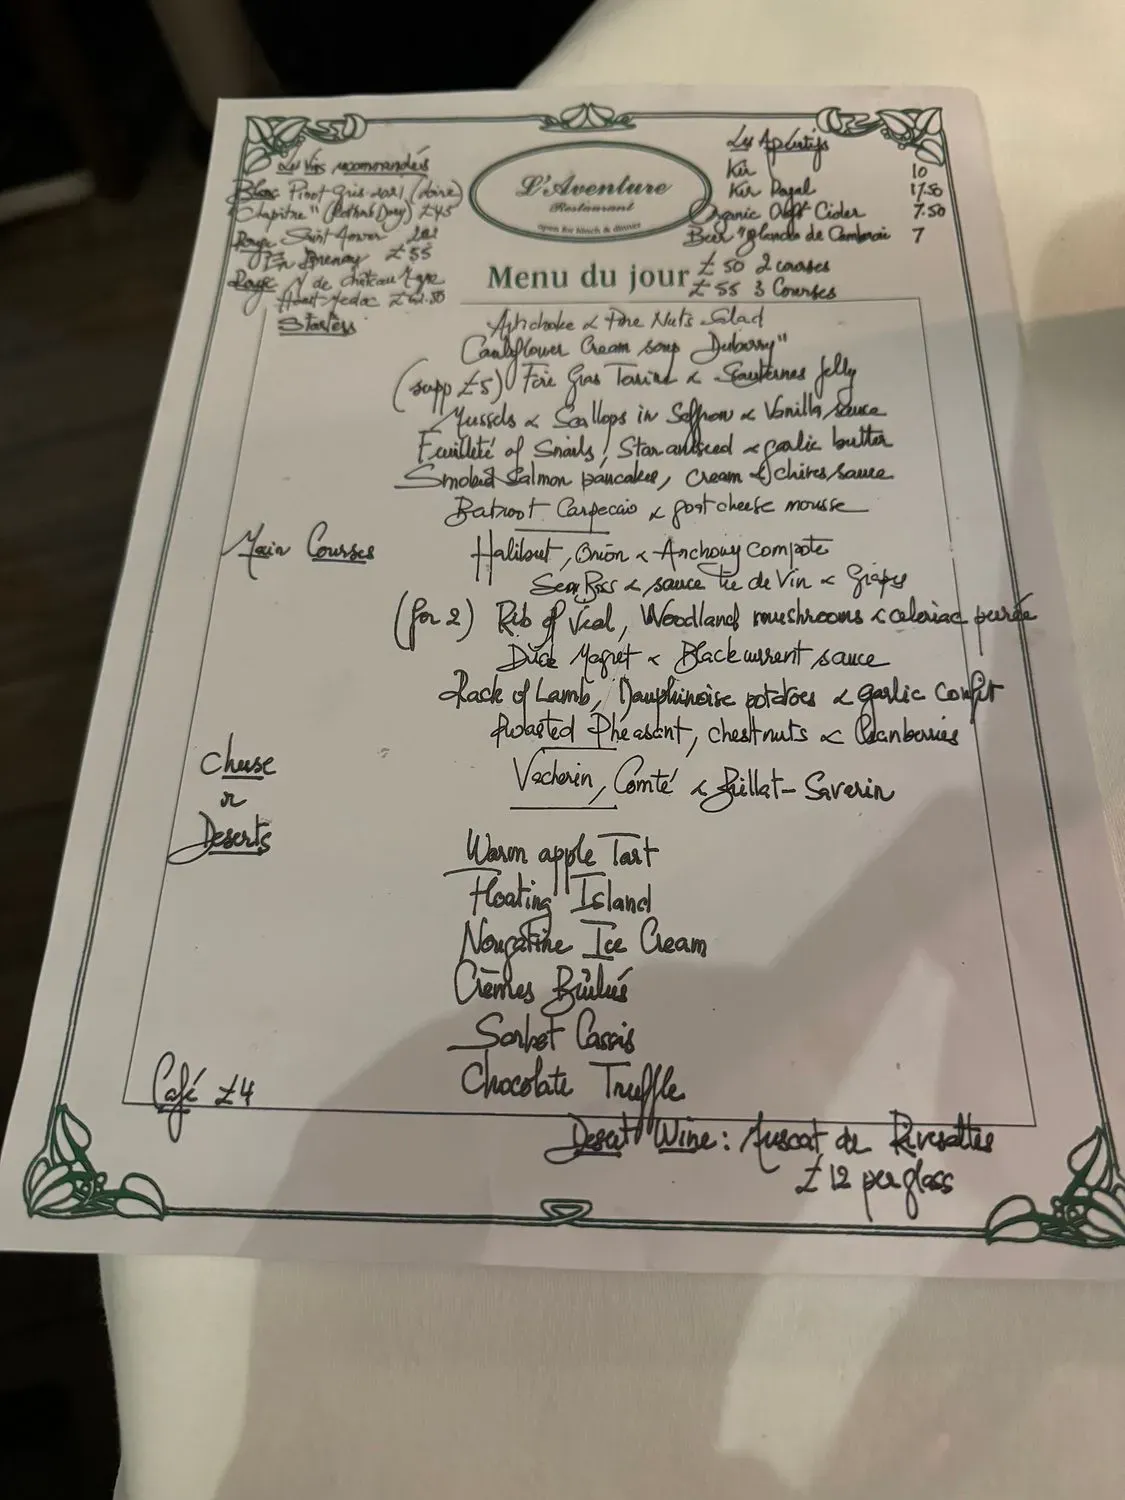 Les Vins recommandés
Blanc Pinot Gris 2021 (Loire)
"Chapitre" £45
Rouge Saint Amour
£55
Rouge de château
Haut-Medoc
L'Aventure
Restaurant
open for lunch & dinner
Les Apéritifs
Kir 10
Kir Royal 17.50
Organic Cider 7.50
Beer 7
Menu du jour
£50 2 courses
£55 3 Courses
Starters
Artichoke & Pine Nuts Salad
Cauliflower Cream soup Dubarry"
(supp £5) Foie Gras Terrine & Sauternes Jelly
Mussels & Scallops in Saffron & Vanilla sauce
Feuilleté of Snails, Star aniseed & garlic butter
Smoked Salmon pancakes, cream & chives sauce
Betroot Carpaccio & goat cheese mousse
Main Courses
Halibut, Onion & Anchovy compote
Sea Bass & sauce Lie de Vin & Grapes
(for 2) Rib of Veal, Woodland mushrooms & celeriac purée
Duck Magret & Blackcurrent sauce
Rack of Lamb, Dauphinoise potatoes & garlic confit
Roasted Pheasant, chestnuts & Cranberries
Cheese
or
Deserts
Vacherin, Comté & Brillat-Savarin
Warm apple Tart
Floating Island
Nougatine Ice Cream
Crèmes Brûlés
Sorbet Cassis
Chocolate Truffle
Café £4
Desert Wine: Muscat de Rivesaltes
£12 per glass